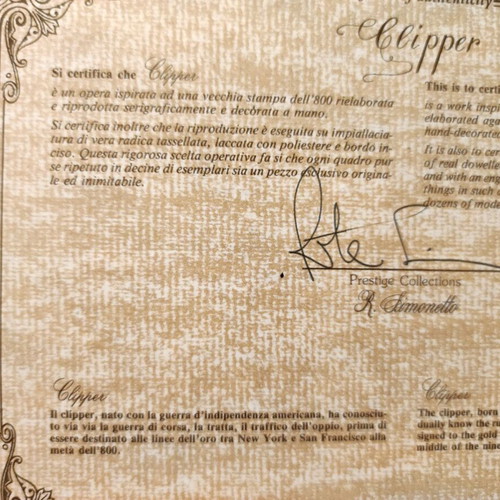 authenticity
Clipper
Si certifica che Clipper
è un opera ispirata ad una vecchia stampa dell'800 rielaborata
e riprodotta serigraficamente e decorata a mano.
Si certifica inoltre che la riproduzione è eseguita su impiallaccia-
tura di vera radica tassellata, laccata con poliestere e bordo in-
ciso. Questa rigorosa scelta operativa fa sì che ogni quadro pur
se ripetuto in decine di esemplari sia un pezzo esclusivo origina-
le ed inimitabile.
This is to certi
is a work inspi
elaborated aga
hand-decorated
It is also to cer
of real dowelle
and with an eng
things in such
dozens of mode
Prestige Collections
R. Simonetto
Clipper
Il clipper, nato con la guerra d'indipendenza americana, ha conosciu-
to via via la guerra di corsa, la tratta, il traffico dell'oppio, prima di
essere destinato alle linee dell'oro tra New York e San Francisco alla
metà dell'800.
Clipper
The clipper, born
dually know the ru
signed to the gold
middle of the nine